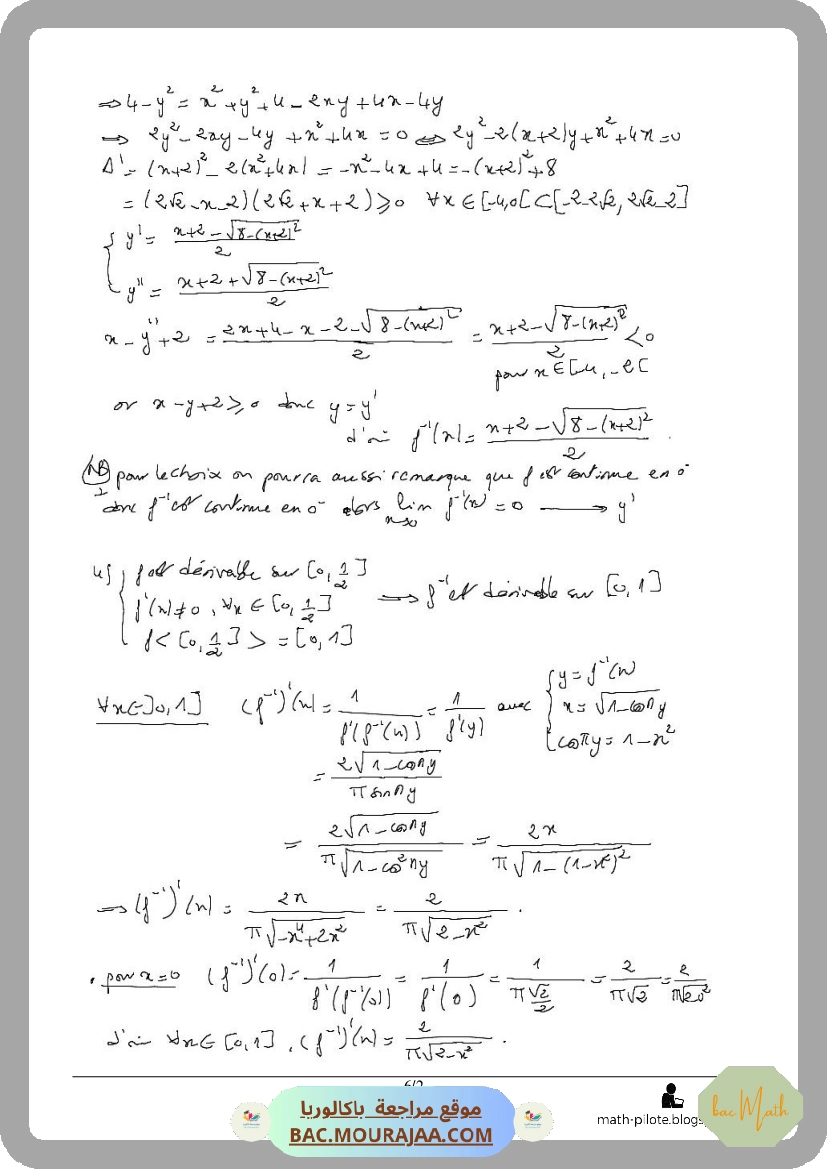 ⟹ 4 - y² = x² + y² + 4 - 2xy + 4x - 4y
⟹ 2y² - 2xy - 4y + x² + 4x = 0 ⟺ 2y² - 2(x+2)y + x² + 4x = 0
Δ' = (x+2)² - 2(x²+4x) = -x² - 4x + 4 = -(x+2)² + 8
= (2√2 - x - 2)(2√2 + x + 2) ⩾ 0 ∀x ∈ [-4,0[ ⊂ [-2-2√2, 2√2-2]
{ y' = (x+2 - √(8-(x+2)²)) / 2
y'' = (x+2 + √(8-(x+2)²)) / 2
x - y'' + 2 = (2x+4 - x - 2 - √(8-(x+2)²)) / 2 = (x+2 - √(8-(x+2)²)) / 2 < 0
pour x ∈ [-4, -2[
or x - y + 2 ⩾ 0 donc y = y'
d'où f⁻¹(x) = (x+2 - √(8-(x+2)²)) / 2 .
NB pour le choix on pourra aussi remarque que f est continue en 0⁻
donc f⁻¹ est continue en 0⁻ alors lim f⁻¹(x) = 0 ⟶ y'
x→0
4) { f est dérivable sur [0, 1/2]
f'(x) ≠ 0 , ∀x ∈ [0, 1/2] ⟹ f⁻¹ est dérivable sur [0, 1]
f<[0, 1/2]> = [0, 1]
∀x ∈ ]0, 1] (f⁻¹)'(x) = 1 / f'(f⁻¹(x)) = 1 / f'(y) avec { y = f⁻¹(x)
x = √(1-cosπy)
cosπy = 1 - x²
= 2√(1-cosπy) / (π sinπy)
= 2√(1-cosπy) / (π√(1-cos²πy)) = 2x / (π√(1-(1-x²)²))
⟹ (f⁻¹)'(x) = 2x / (π√(-x⁴+2x²)) = 2 / (π√(2-x²)) .
• pour x=0 (f⁻¹)'(0) = 1 / f'(f⁻¹(0)) = 1 / f'(0) = 1 / (π √2/2) = 2 / (π√2) = 2 / (π√(2-0²))
d'où ∀x ∈ [0, 1] , (f⁻¹)'(x) = 2 / (π√(2-x²)) .
موقع مراجعة باكالوريا
BAC.MOURAJAA.COM
math-pilote.blogs
bac Math